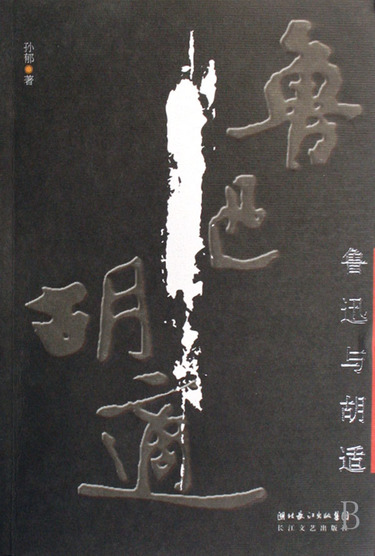 孙郁 著
鲁迅
胡適
鲁迅与胡适
湖北长江出版集团
长江文艺出版社
B